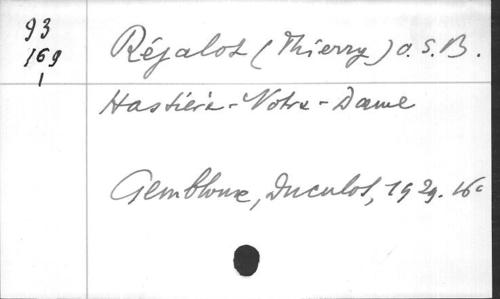 93
169
1
Réjalot (Thierry) O.S.B.
Hastière-Notre-Dame
Gembloux, Duculot, 1929. 16°